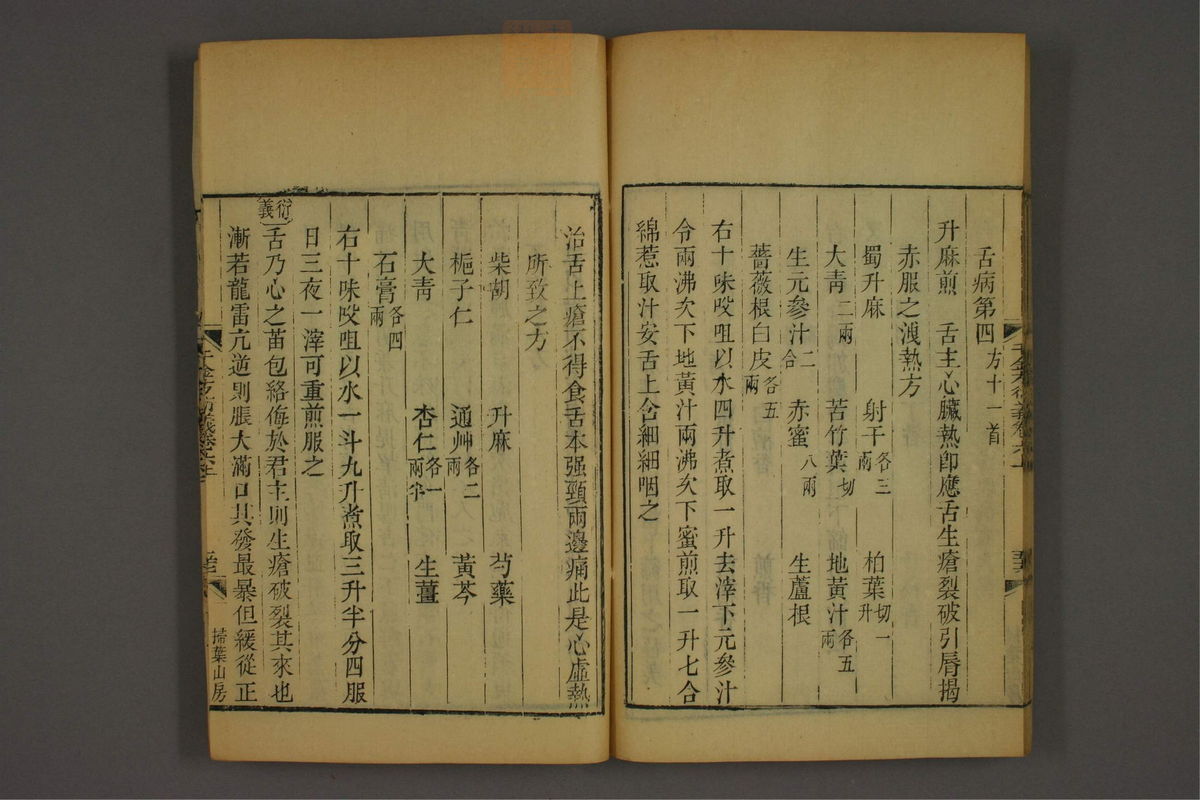 舌病第四 方十一首
升麻煎 舌主心臟熱卽應舌生瘡裂破引脣揭
赤服之洩熱方
蜀升麻 射干各三兩 柏葉切一升
大青二兩 苦竹葉切 地黃汁各五兩
生元參汁二合 赤蜜八兩 生蘆根
薔薇根白皮各五兩
右十味㕮咀以水四升煮取一升去滓下元參汁
令兩沸次下地黃汁兩沸次下蜜煎取一升七合
綿惹取汁安舌上含細細咽之
治舌上瘡不得食舌本强頸兩邊痛此是心虛熱
所致之方
柴胡 升麻 芍藥
梔子仁 通艸各二兩 黃芩
大青 杏仁各一兩半 生薑
石膏各四兩
右十味㕮咀以水一斗九升煮取三升半分四服
日三夜一滓可重煎服之
衍義
舌乃心之苗包絡侮於君主則生瘡破裂其來也
漸若龍雷亢逆則脹大滿口其發最暴但緩從正
掃葉山房